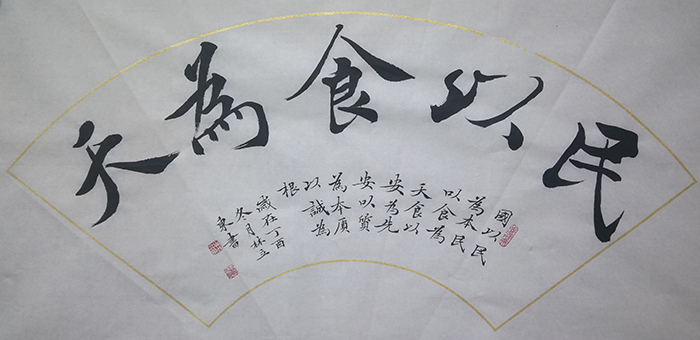 民以食為天
國以民
為本民
以食為
天食以
安為先
安以質
為本質
以誠為
根
歲在丁酉
冬月林立
書